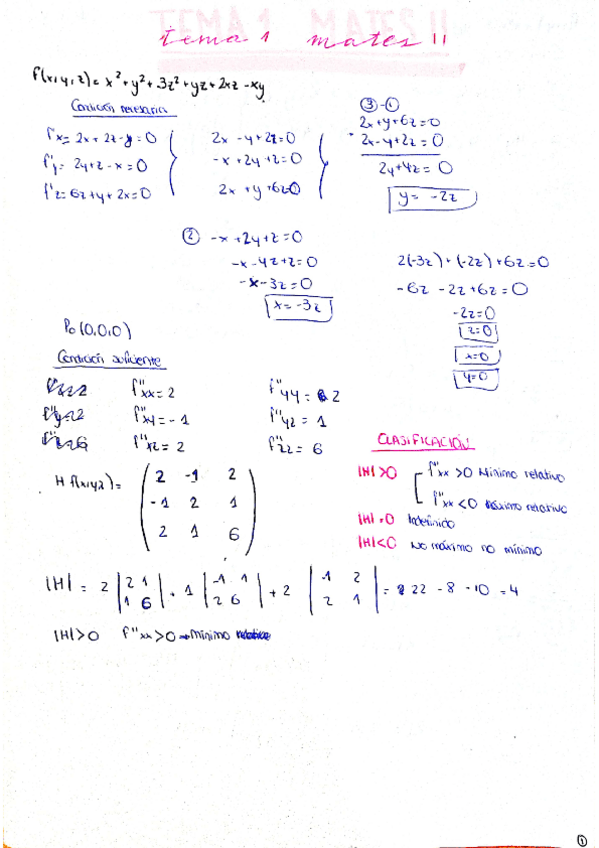 tema 1 mates II
f(x,y,z) = x² + y² + 3z² + yz + 2xz - xy
Condición necesaria
f'x = 2x + 2z - y = 0
f'y = 2y + z - x = 0
f'z = 6z + y + 2x = 0
2x - y + 2z = 0
-x + 2y + z = 0
2x + y + 6z = 0
③ - ①
2x + y + 6z = 0
2x - y + 2z = 0
2y + 4z = 0
y = -2z
② -x + 2y + z = 0
-x - 4z + z = 0
-x - 3z = 0
x = -3z
2(-3z) + (-2z) + 6z = 0
-6z - 2z + 6z = 0
-2z = 0
z = 0
x = 0
y = 0
P₀ (0,0,0)
Condición suficiente
f''xx = 2 f''yy = 2
f''xy = -1 f''yz = 1
f''xz = 2 f''zz = 6
H f(x,y,z) =
2 -1 2
-1 2 1
2 1 6
CLASIFICACIÓN
|H| > 0 f''xx > 0 Mínimo relativo
f''xx < 0 Máximo relativo
|H| = 0 Indefinido
|H| < 0 No máximo no mínimo
|H| = 2 |2 1; 1 6| + 1 |-1 1; 2 6| + 2 |-1 2; 2 1| = 22 - 8 - 10 = 4
|H| > 0 f''xx > 0 → Mínimo
1